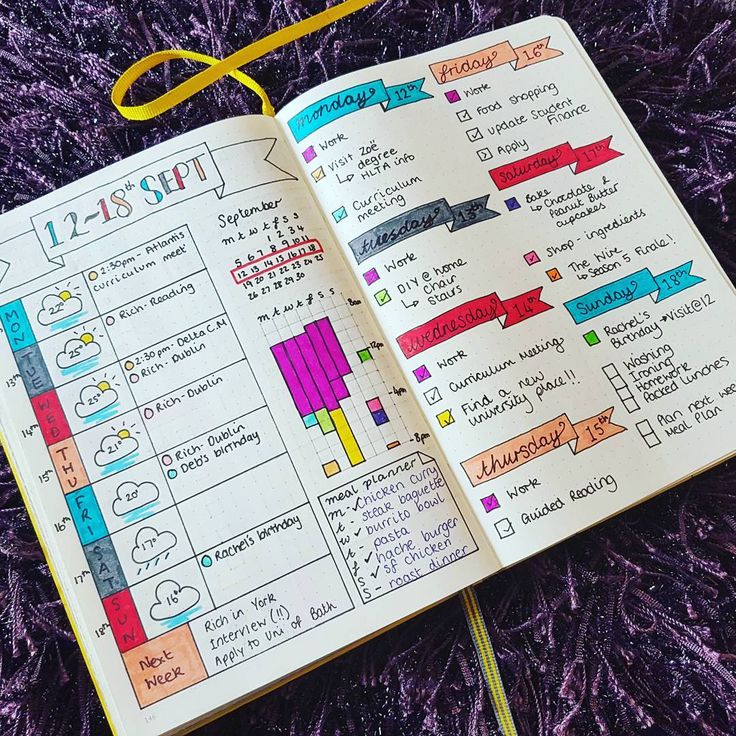 12-18th SEPT
MON
13th
TUE
WED
14th
THU
15th
FRI
16th
SAT
17th
SUN
18th
22°
25°
25°
21°
20°
17°
16°
2:30pm - Atlantis
curriculum meet
Rich - Reading
2:30pm - Delta C.M
Rich - Dublin
Rich - Dublin
Rich - Dublin
Deb's birthday
Rachel's birthday
Next
Week
Rich in York
Interview (!!)
Apply to Uni of Bath
September
m t w t f s s
1 2 3 4
5 6 7 8 9 10 11
12 13 14 15 16 17 18
19 20 21 22 23 24 25
26 27 28 29 30
m t w t f s s
8am
12pm
4pm
8pm
meal planner
m - Chicken curry
t - steak baguette
w burrito bowl
t - pasta
f hache burger
s sf chicken
S - roast dinner
monday 12th
Work
Visit Zoë
↳ degree
HLTA info
Curriculum
meeting
tuesday 13th
Work
DIY @ home
↳ Chair
Stairs
wednesday 14th
Work
Curriculum meeting
Find a new
university place!!
thursday 15th
Work
Guided Reading
friday 16th
Work
Food shopping
Update Student
Finance
Apply
Saturday 17th
Bake
↳ Chocolate &
Peanut Butter
cupcakes
Shop - ingredients
The Wire
↳ Season 5 Finale!!
Sunday 18th
Rachel's
Birthday → Visit @ 12
Washing
Ironing
Homework
Packed lunches
Plan next week
Meal Plan